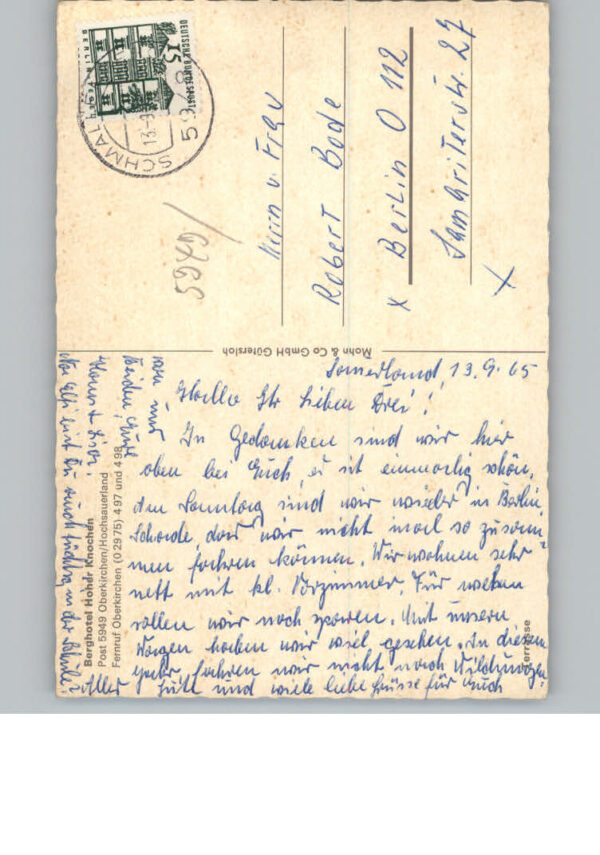 DEUTSCHE BUNDESPOST
BERLIN
15
SCHMAL
13.9.
59
5949
Herrn u. Frau
Robert Bode
x Berlin O 112
Samariterstr. 27
x
Mohn & Co GmbH Gütersloh
Sauerland, 13.9.65
Hallo Ihr lieben Drei!
In Gedanken sind wir hier
oben bei Euch, es ist einmalig schön,
Am Sonntag sind wir wieder in Berlin,
Schade, das wir nicht mal so zusam-
men fahren können. Wir wohnen sehr
nett mit kl. Vorzimmer. Für
wollen wir noch sparen. Mit unsern
Wagen haben wir viel gesehen. In diesem
Jahr fahren wir nicht nach Wildungen.
Alles Gute und viele liebe Grüsse für Euch
von uns
beiden, Eure
Na Elfi bist Du auch tüchtig in der Schule?
Berghotel Hoher Knochen
Post 5949 Oberkirchen/Hochsauerland
Fernruf Oberkirchen (0 29 75) 4 97 und 4 98